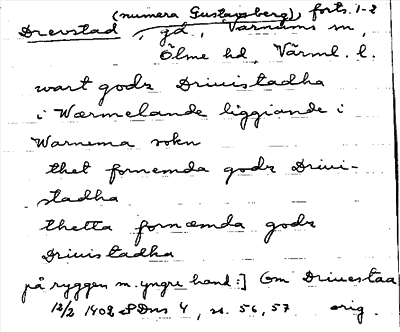 (numera Gustavsberg), forts. 1-2
Drevstad, gd, Varnums sn,
Ölme hd, Värml. l.
wart godz Driuistadha
i Wærmelande liggiande i
Warnema sokn
thet fornemda godz Driui-
stadha
thetta fornæmda godz
Driuistadha
på ryggen m. yngre hand:] Om Driuestaa
12/2 1402 SDns 1, s. 56, 57 orig.